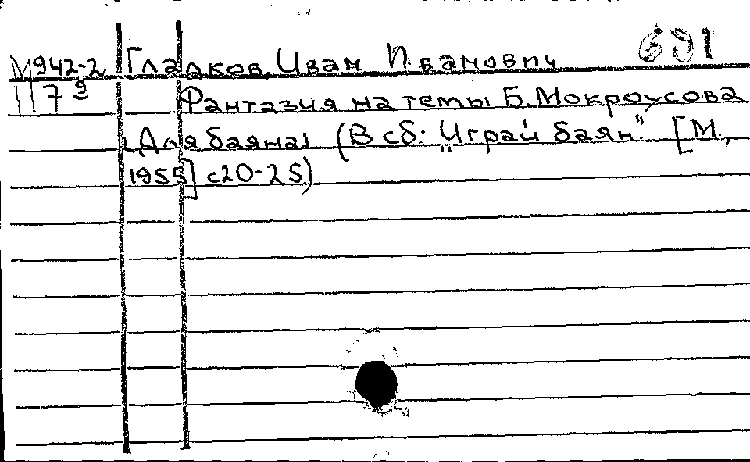 691
М942-2 Гладков, Иван Иванович
7 9 Фантазия на темы Б. Мокроусова
(Для баяна) (В сб: "Играй баян" [М.,
1955] с20-25)